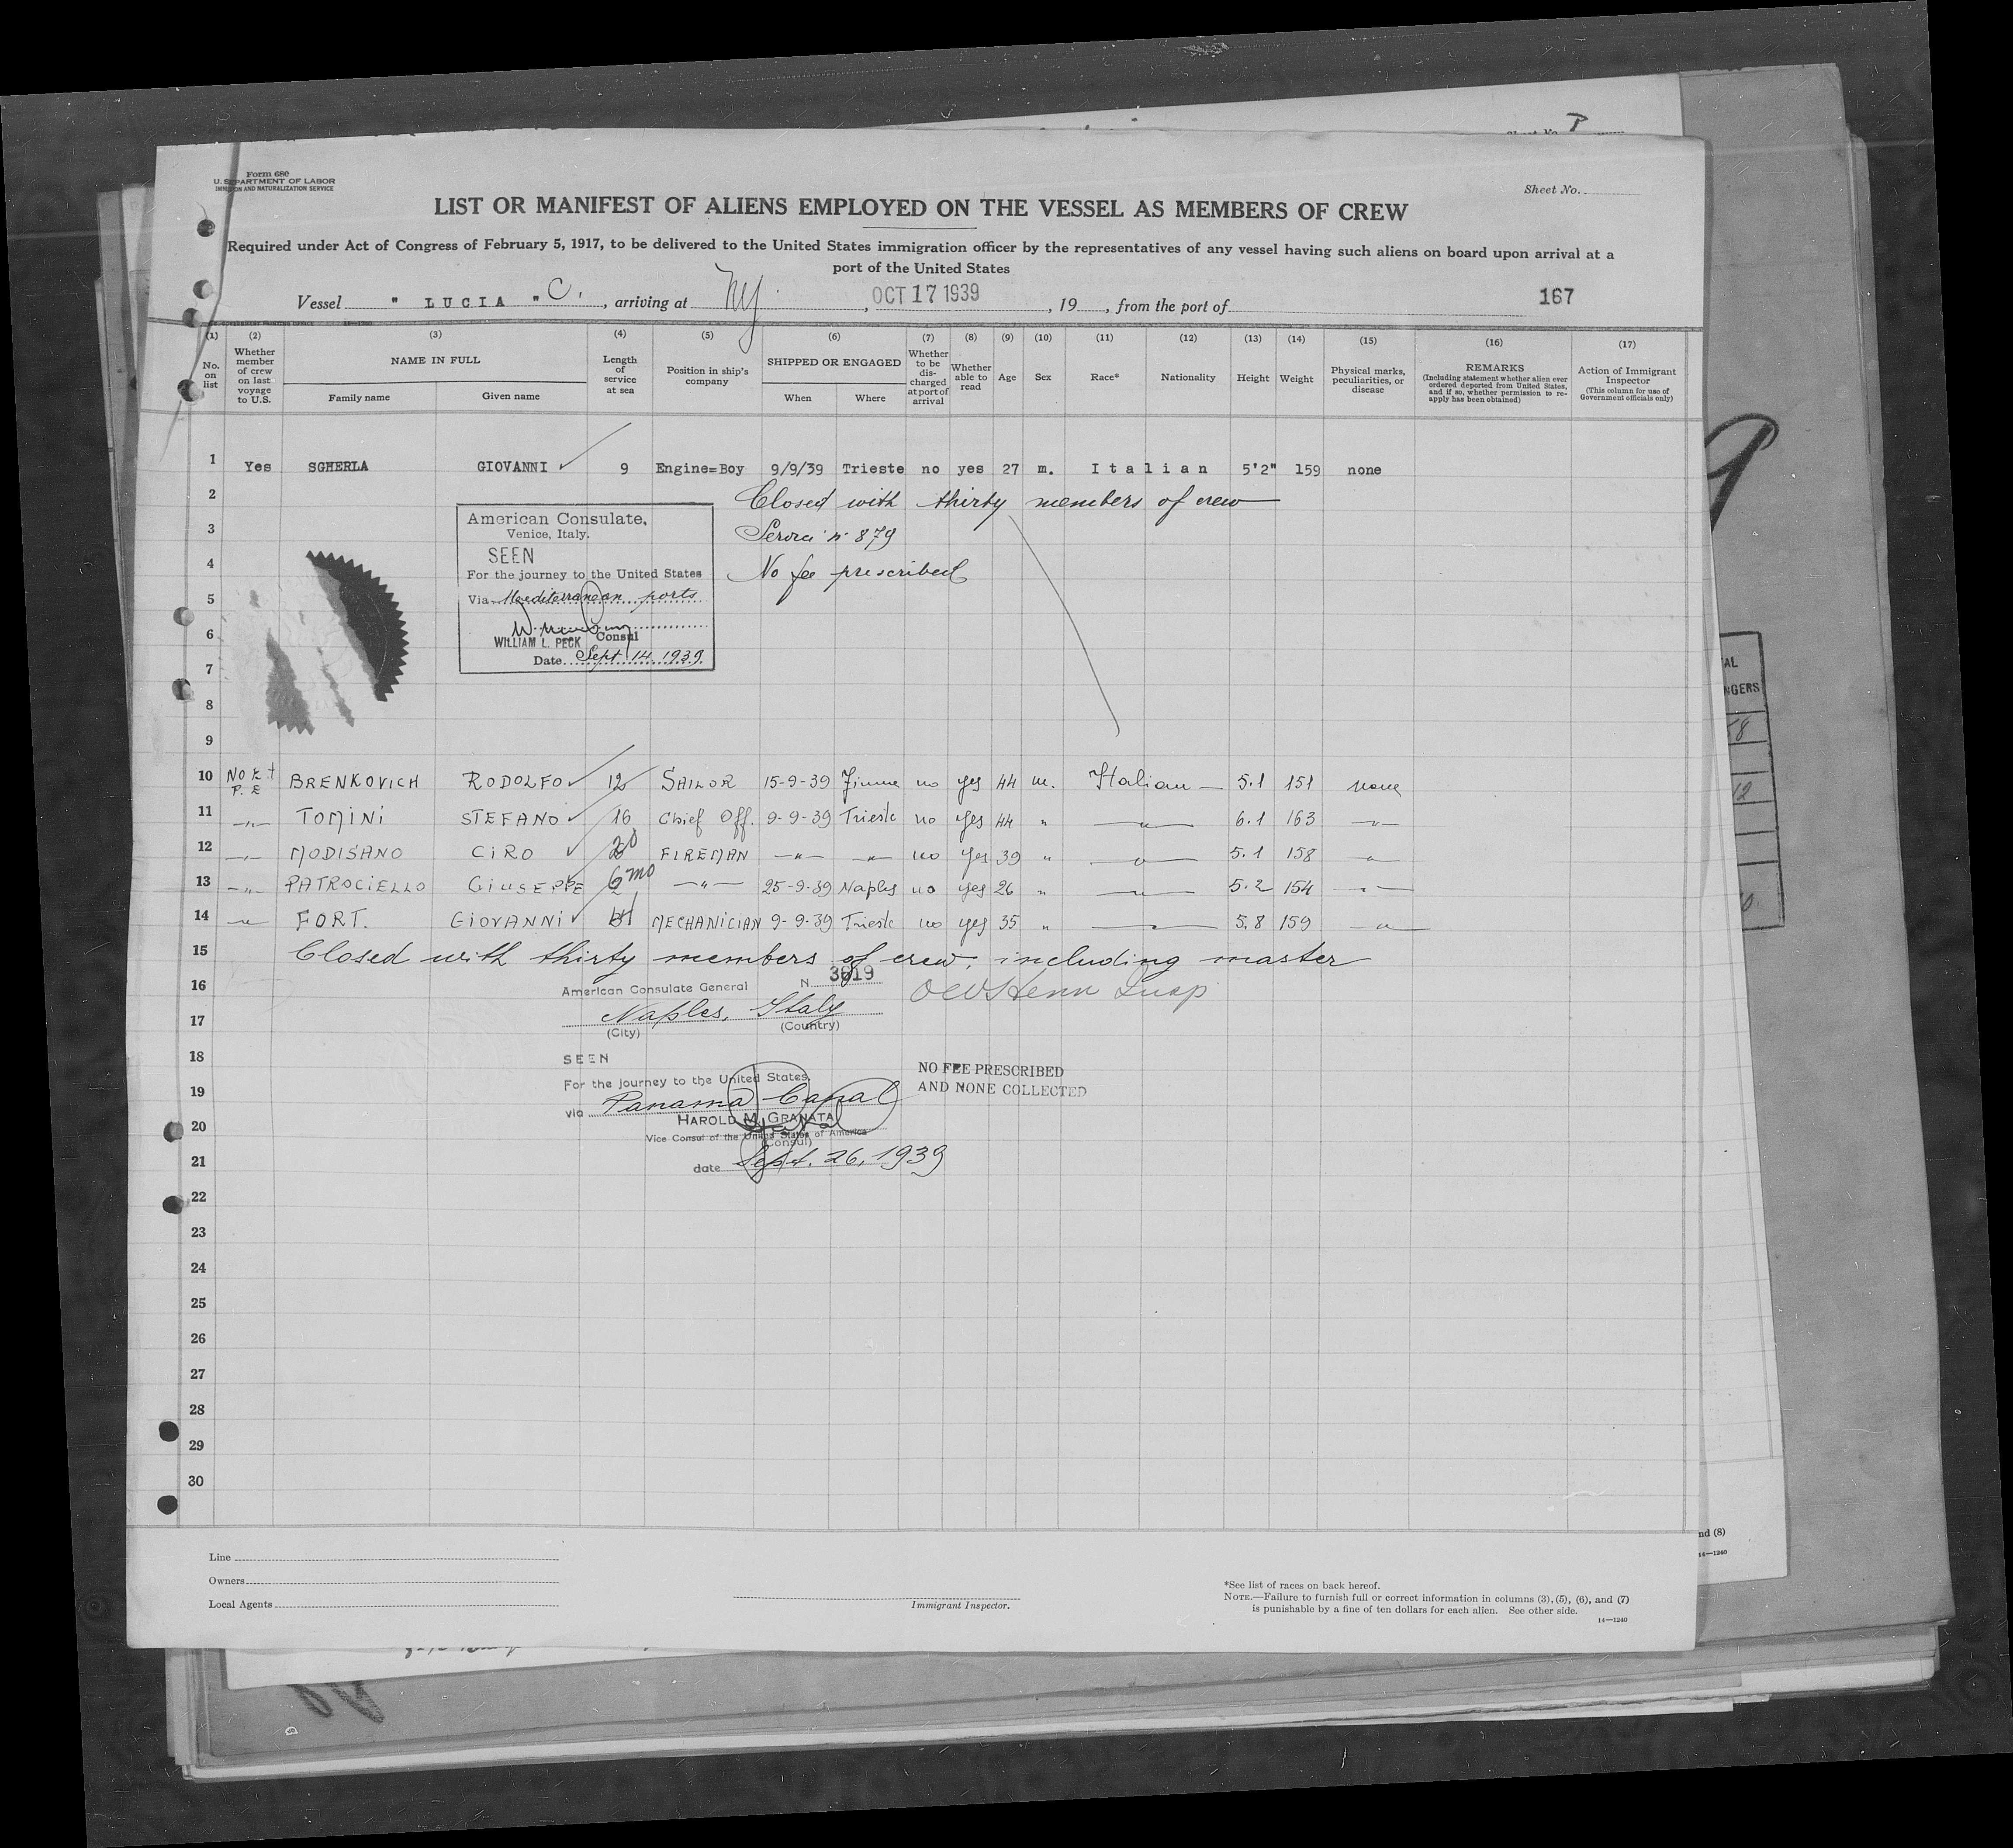 Form 680
U. S. DEPARTMENT OF LABOR
IMMIGRATION AND NATURALIZATION SERVICE
Sheet No.
LIST OR MANIFEST OF ALIENS EMPLOYED ON THE VESSEL AS MEMBERS OF CREW
Required under Act of Congress of February 5, 1917, to be delivered to the United States immigration officer by the representatives of any vessel having such aliens on board upon arrival at a
port of the United States
Vessel " LUCIA " C. , arriving at NY , OCT 17 1939 , 19 , from the port of 167
(1) (2) (3) (4) (5) (6) (7) (8) (9) (10) (11) (12) (13) (14) (15) (16) (17)
No. on list
Whether member of crew on last voyage to U.S.
NAME IN FULL
Family name
Given name
Length of service at sea
Position in ship's company
SHIPPED OR ENGAGED
When
Where
Whether to be discharged at port of arrival
Whether able to read
Age
Sex
Race*
Nationality
Height
Weight
Physical marks, peculiarities, or disease
REMARKS
(Including statement whether alien ever ordered deported from United States, and if so, whether permission to reapply has been obtained)
Action of Immigrant Inspector
(This column for use of Government officials only)
1 Yes SGHERLA GIOVANNI 9 Engine=Boy 9/9/39 Trieste no yes 27 m. Italian 5'2" 159 none
2 Closed with thirty members of crew
3 n. 879
4 No fee prescribed
5
6
7
8
9
American Consulate,
Venice, Italy.
SEEN
For the journey to the United States
Via Mediterranean ports
WILLIAM L. PECK Consul
Date Sept 14 1939
10 BRENKOVICH RODOLFO 12 SAILOR 15-9-39 Fiume no yes 44 m. Italian 5.1 151 none
11 -"- TOMINI STEFANO 16 Chief Off. 9-9-39 Trieste no yes 44 " -"- 6.1 163 -"-
12 -"- MODISANO CIRO 20 FIREMAN -"- -"- no yes 39 " -"- 5.1 158 -"-
13 -"- PATROCIELLO GIUSEPPE 6 mo -"- 25-9-39 Naples no yes 26 " -"- 5.2 154 -"-
14 -"- FORT. GIOVANNI MECHANICIAN 9-9-39 Trieste no yes 35 " -"- 5.8 159 -"-
15 Closed with thirty members of crew, including master
16
17
18
19
20
21
22
23
24
25
26
27
28
29
30
American Consulate General N. 3819
Naples, Italy
(City) (Country)
SEEN
For the journey to the United States
via Panama Canal
HAROLD M. GRANATA
Vice Consul of the United States of America
(Consul)
date Sept. 26, 1939
NO FEE PRESCRIBED
AND NONE COLLECTED
Line
Owners
Local Agents
Immigrant Inspector.
*See list of races on back hereof.
NOTE.—Failure to furnish full or correct information in columns (3), (5), (6), and (7)
is punishable by a fine of ten dollars for each alien. See other side.
14—1240
nd (8)
14—1240